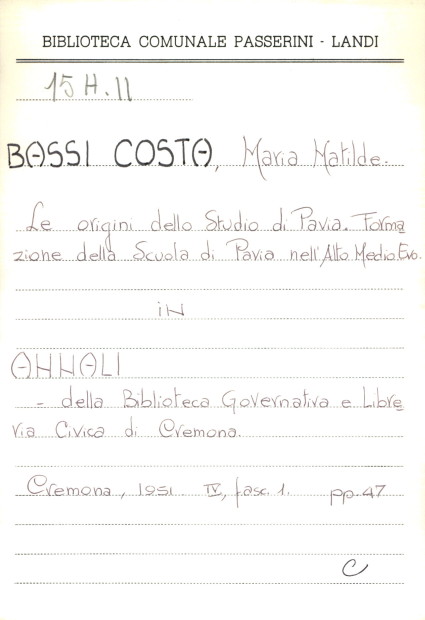 BIBLIOTECA COMUNALE PASSERINI - LANDI
15 H. 11
BASSI COSTA, Maria Matilde.
Le origini dello Studio di Pavia. Forma
zione della Scuola di Pavia nell'Alto Medio Evo.
IN
ANNALI
- della Biblioteca Governativa e Libre
ria Civica di Cremona.
Cremona, 1951 IV, fasc. 1. pp. 47
C